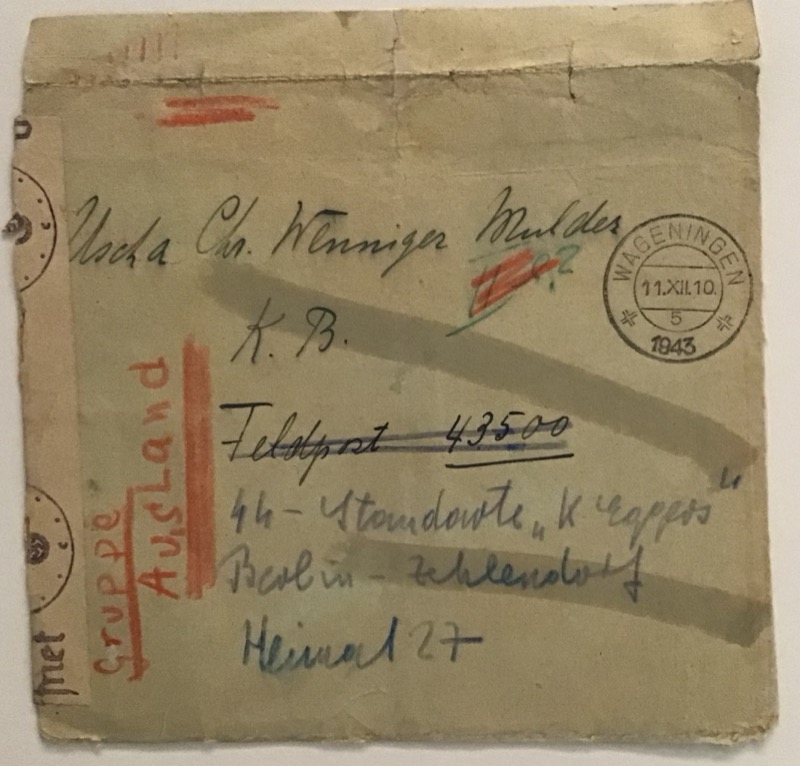 Uscha Chr. Wenniger Mulder
K. B.
WAGENINGEN
11.XII.10.
5
1943
Feldpost 43500
44 - Standarte „K Eggers“
Berlin - Zehlendorf
Heimat 27
Gruppe
Ausland